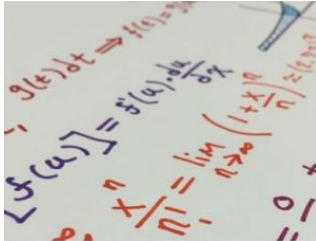 g(t)dt ⇒ f(t) = g(
[f(u)] = f'(u) · du/dx
x^n/n! = lim n→∞ (1 + x/n)^n